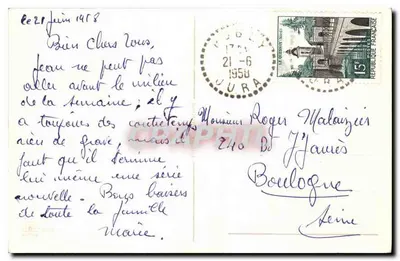 le 21 juin 1958
Bien Chers Tous,
Jean ne peut pas
aller avant le milieu
de la semaine, il y
a toujours des contretemps
rien de grave, mais il
faut qu'il termine
lui même une série
nouvelle. Bons baisers
de toute la famille
Marie.
21-6
1958
JURA
15F
Monsieur Roger Malauzeix
240 Bd J Jaurès
Boulogne
Seine